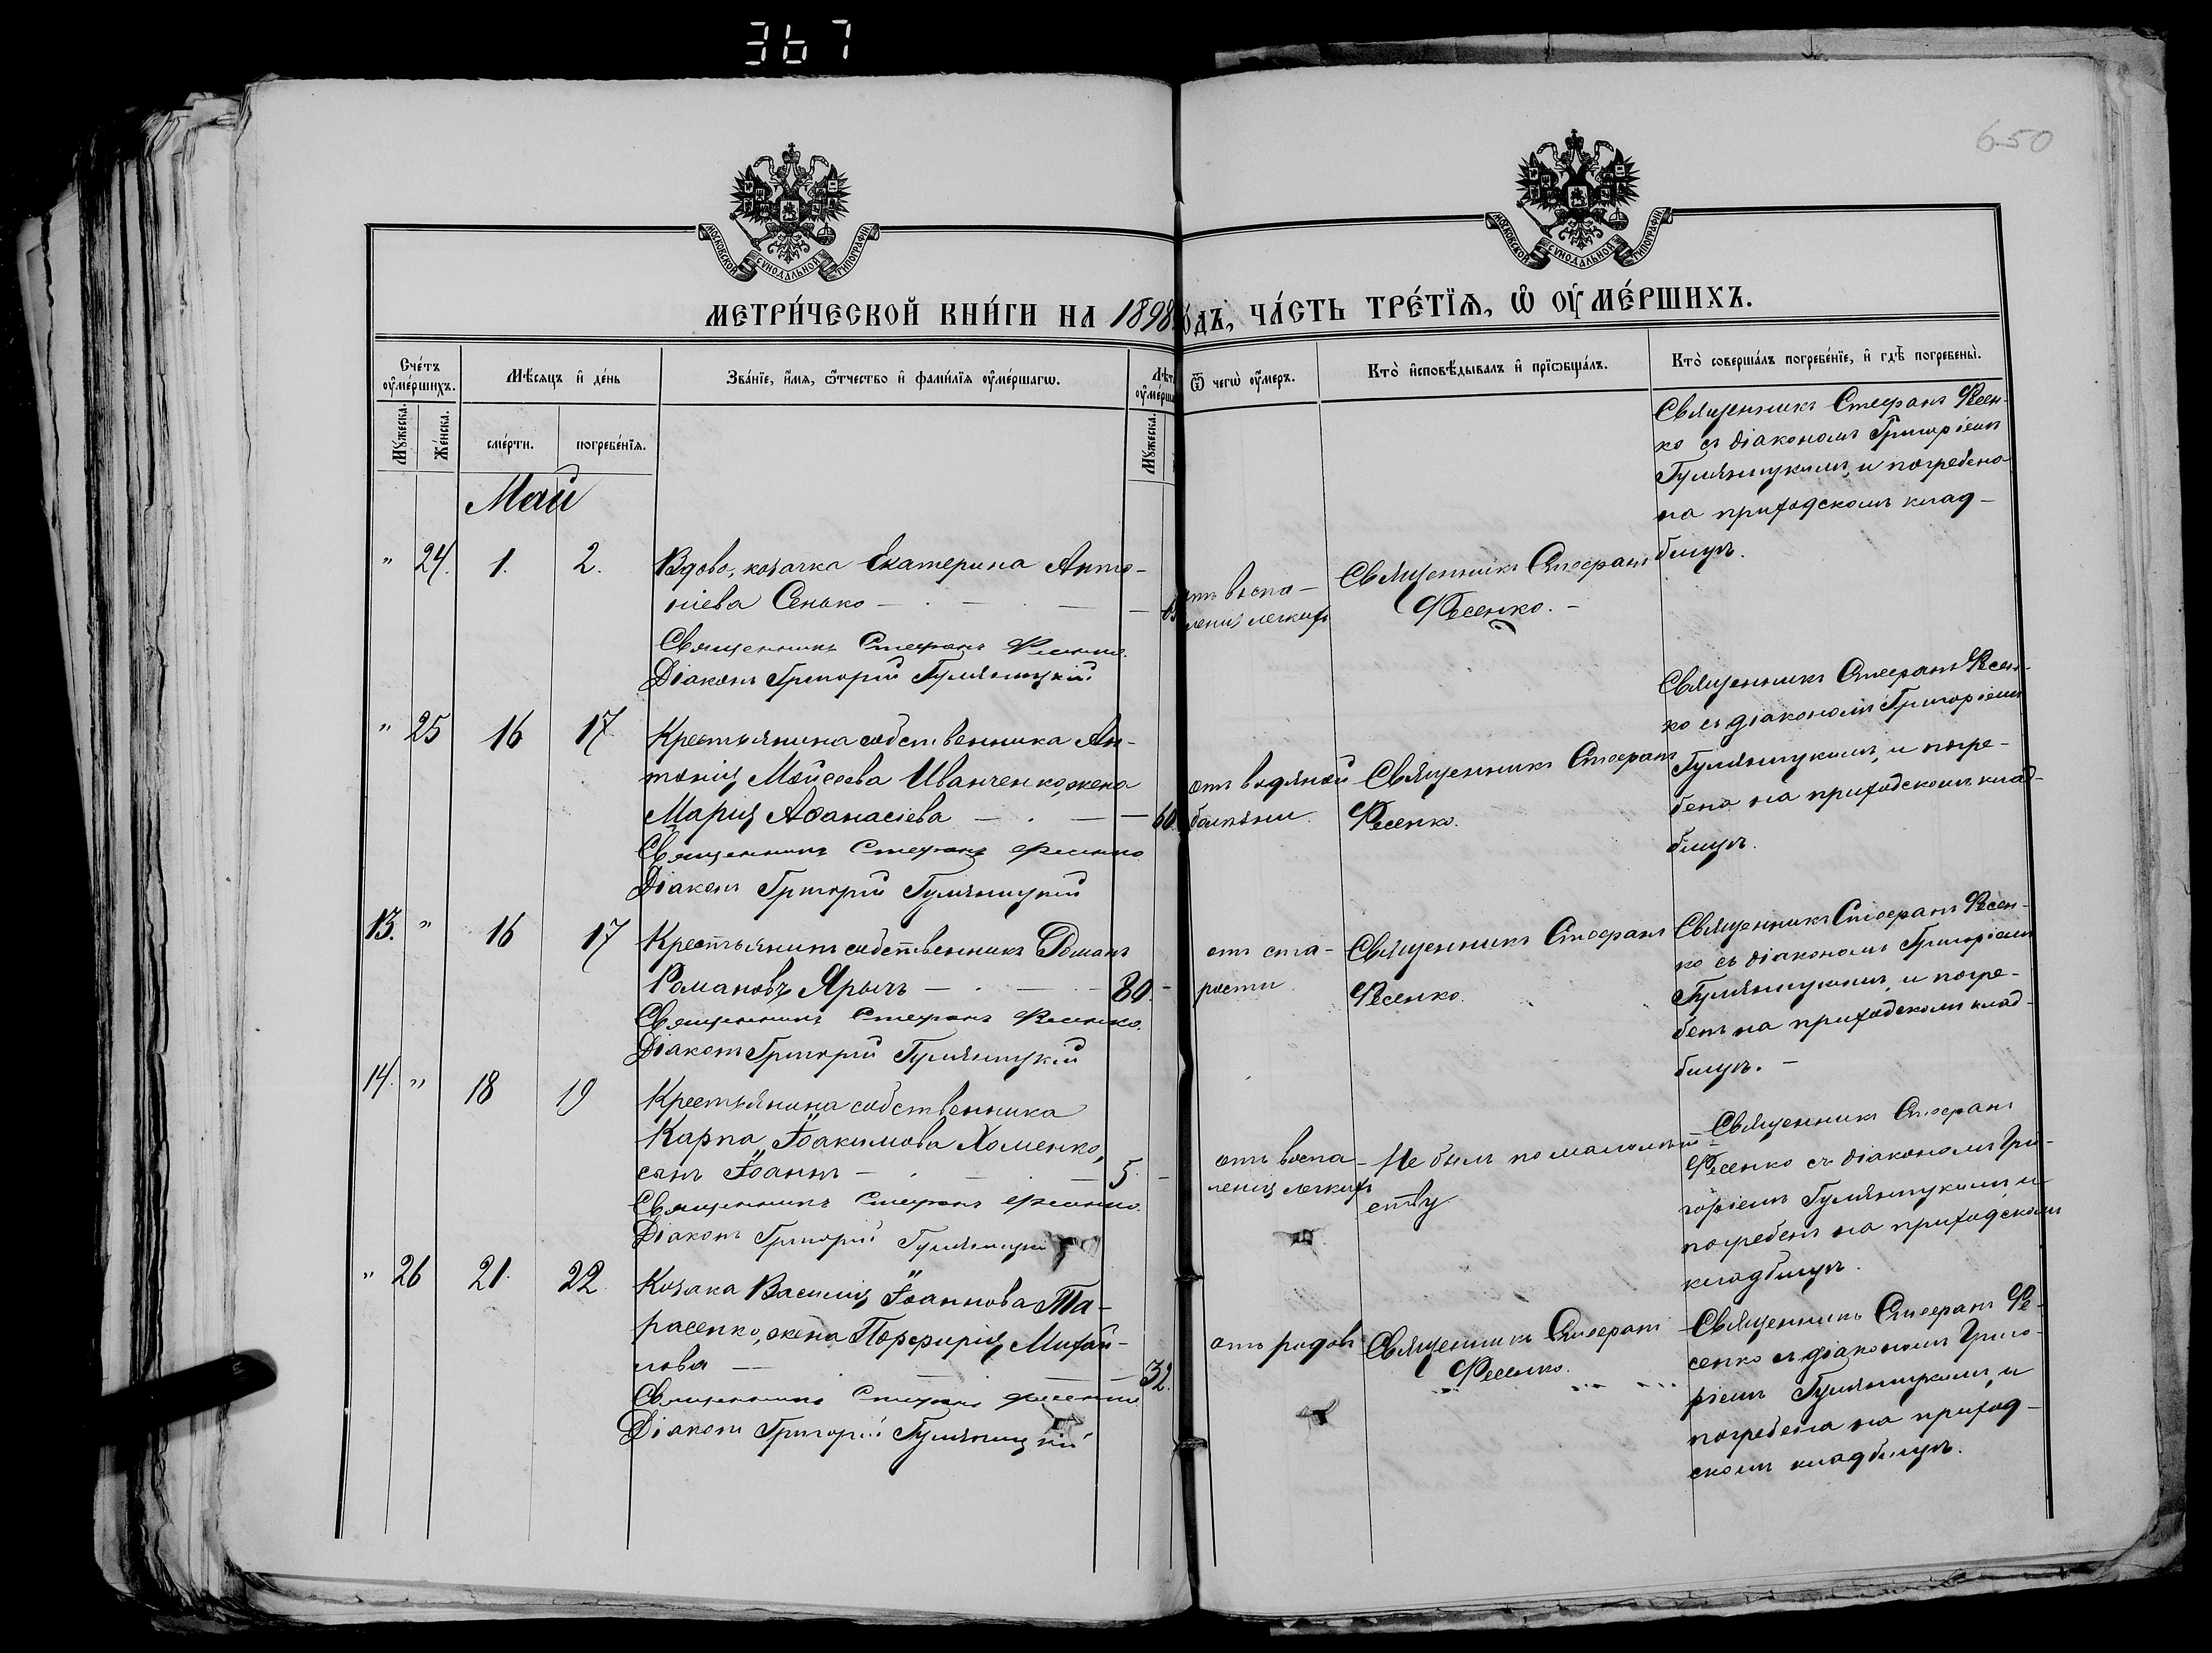 367
650
МОСКОВСКОЙ СѴНОДАЛЬНОЙ ТИПОГРАФІИ
МОСКОВСКОЙ СѴНОДАЛЬНОЙ ТИПОГРАФІИ
МЕТРИ́ЧЕСКОЙ КНИ́ГИ НА 1898 ѻ́дъ, ЧА́СТЬ ТРЕ́ТЇѦ, Ѡ҆ ОУ҆МЕ́РШИХЪ.
Сче́тъ оу҆ме́ршихъ.
Мꙋ́жеска.
Же́нска.
Мѣ́сѧцъ и҆ де́нь
сме́рти.
погребе́нїѧ.
Зва́нїе, и҆́мѧ, ѻ҆́тчество и҆ фами́лїѧ оу҆ме́ршагѡ.
Лѣт
оу҆ме́рша
Мꙋ́жеска.
Ѿ чегѡ̀ оу҆́меръ.
Кто̀ и҆сповѣ́дывалъ и҆ прїѡбща́лъ.
Кто̀ соверша́лъ погребе́нїе, и҆ гдѣ̀ погребены̀.
Май
" 24. 1. 2.
Вдова, козачка Екатерина Анто-
ніева Сенько
Священникъ Стефанъ Фесенко.
Діаконъ Григорій Гуляницкій
отъ воспа-
ленія легкихъ
Священникъ Стефанъ
Фесенко.
Священникъ Стефанъ Фесен-
ко съ діакономъ Григоріемъ
Гуляницкимъ, и погребена
на приходскомъ клад-
бищѣ.
" 25 16 17
Крестьянина собственника Ан-
тонія Мойсеева Иванченко, жена
Марія Аѳанасіева 60
Священникъ Стефанъ Фесенко
Діаконъ Григорій Гуляницкій
отъ водяной
болѣзни.
Священникъ Стефанъ
Фесенко.
Священникъ Стефанъ Фесен-
ко съ діакономъ Григоріемъ
Гуляницкимъ, и погре-
бена на приходскомъ клад-
бищѣ.
13. " 16 17
Крестьянинъ собственникъ Романъ
Романовъ Ярычъ 80.
Священникъ Стефанъ Фесенко.
Діаконъ Григорій Гуляницкій
отъ ста-
рости
Священникъ Стефанъ
Фесенко.
Священникъ Стефанъ Фесен-
ко съ діакономъ Григоріемъ
Гуляницкимъ, и погре-
бенъ на приходскомъ клад-
бищѣ.
14. " 18 19
Крестьянина собственника
Карпа Іоакимова Хоменко,
сынъ Іоаннъ 5
Священникъ Стефанъ Фесенко.
Діаконъ Григорій Гуляницкій
отъ воспа-
ленія легкихъ
Не былъ по малолѣт-
ству
Священникъ Стефанъ
Фесенко съ діакономъ Гри-
горіемъ Гуляницкимъ, и
погребенъ на приходскомъ
кладбищѣ.
" 26 21. 22.
Козака Василія Іоаннова Та-
расенко, жена Порфирія Михай-
лова 32.
Священникъ Стефанъ Фесенко
Діаконъ Григорій Гуляницкій
отъ родовъ
Священникъ Стефанъ
Фесенко.
Священникъ Стефанъ Фе-
сенко съ діакономъ Григо-
ріемъ Гуляницкимъ, и
погребена на приход-
скомъ кладбищѣ.